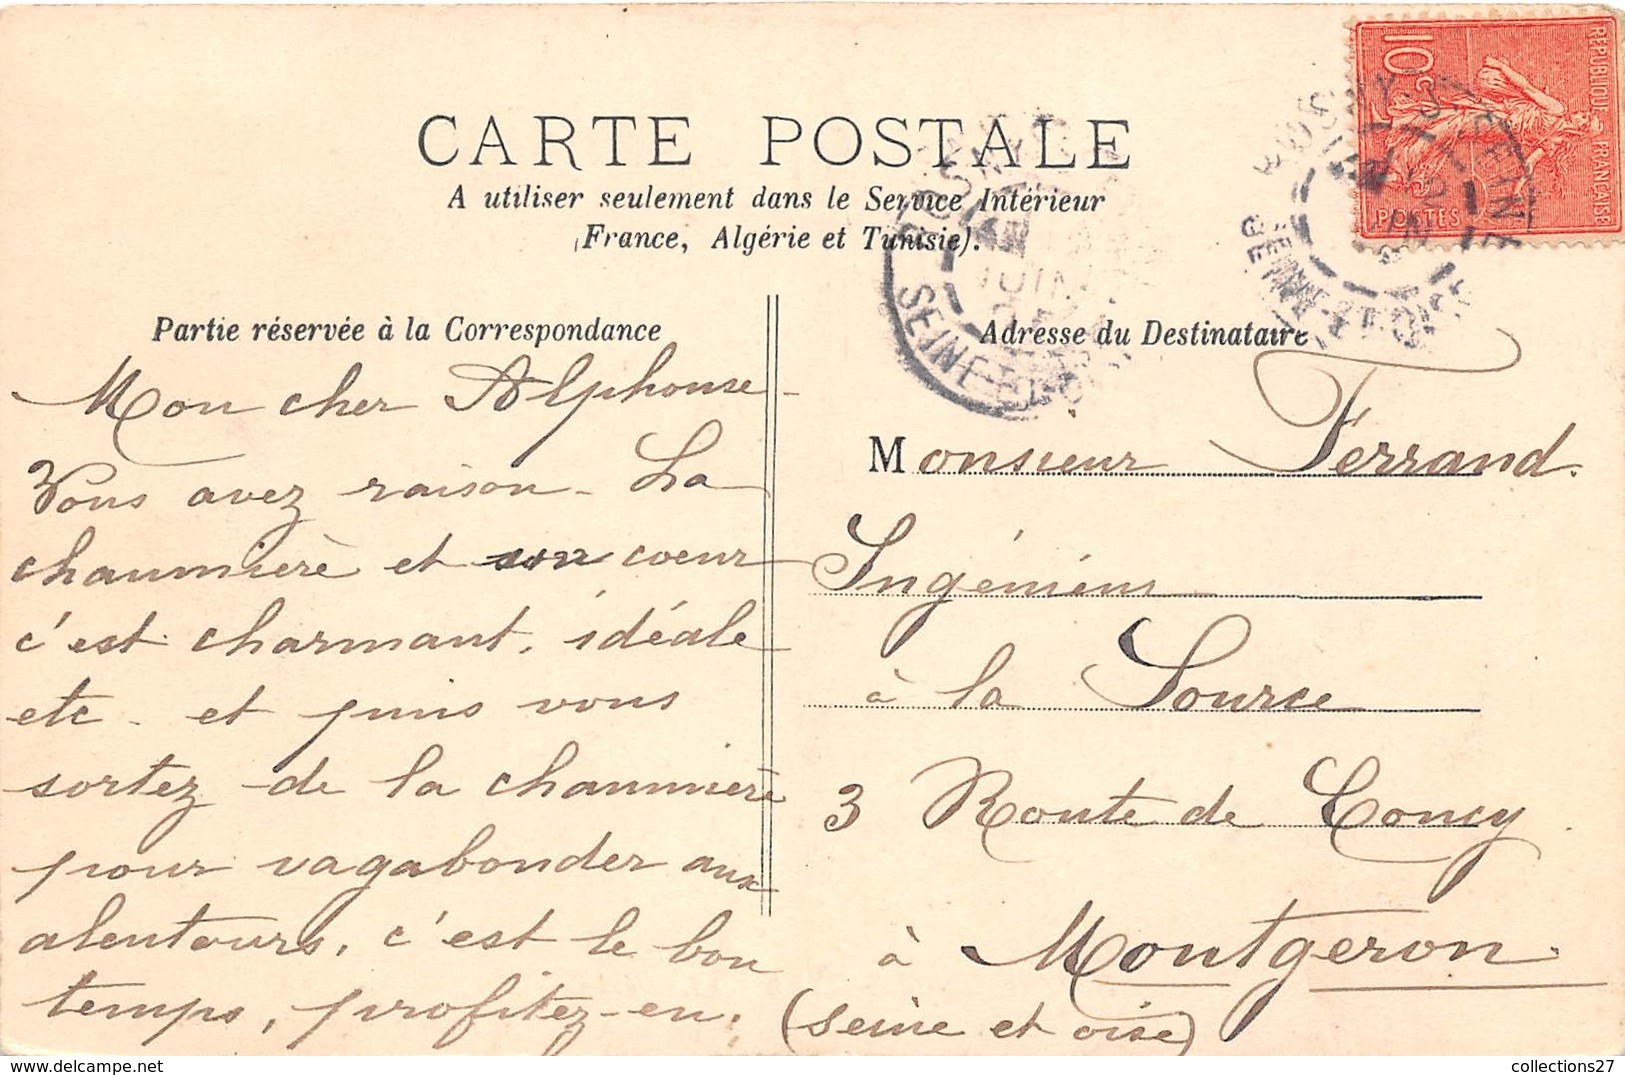 CARTE POSTALE
A utiliser seulement dans le Service Intérieur
(France, Algérie et Tunisie).
Partie réservée à la Correspondance
Mon cher Alphonse
Vous avez raison - La
chaumière et son coeur
c'est charmant, idéale
etc - et puis vous
sortez de la chaumière
pour vagabonder aux
alentours, c'est le bon
temps, profitez-en.
Adresse du Destinataire
Monsieur Ferrand.
Ingénieur
à la Source
3 Route de Concy
à Montgeron.
(seine et oise)
10c
REPUBLIQUE FRANÇAISE
POSTES
ROSNY-S-SEINE
JUIN
SEINE-ET-OISE
collections27